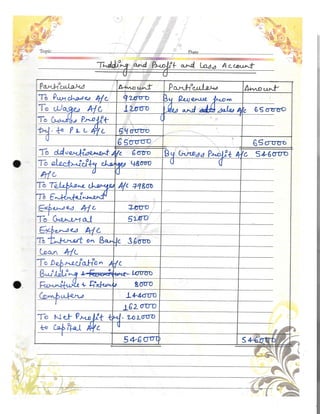 Topic
Date
Trading and Profit and Loss Account
Particulars Amount Particulars Amount
To Purchases A/C 92000 By Revenue from
To Wages A/C 12000 fees and sales A/c 650000
To Gross Profit
trf. to P & L A/C 546000
650000 650000
To Advertisement A/c 6000 By Gross Profit A/c 546000
To electricity charges 48000
A/C
To Telephone charges A/C 79800
To Entertainment
Expenses A/C 7000
To General 5200
Expenses A/C
To Interest on Bank 36000
Loan A/C
To Depreciation A/c
Building 10000
Furniture & Fixtures 8000
Computers 144000
162000
To Net Profit trf. 202000
to Capital A/c
546000 546000